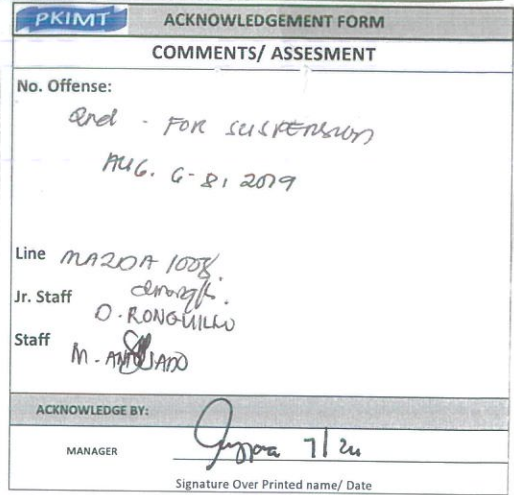 PKIMT
ACKNOWLEDGEMENT FORM
COMMENTS/ ASSESMENT
No. Offense:
2nd - FOR SUSPENSION
AUG. 6-8, 2019
Line MAZDA 1008
Jr. Staff
O. RONGUILLO
Staff
M.
ACKNOWLEDGE BY:
MANAGER 7/24
Signature Over Printed name/ Date